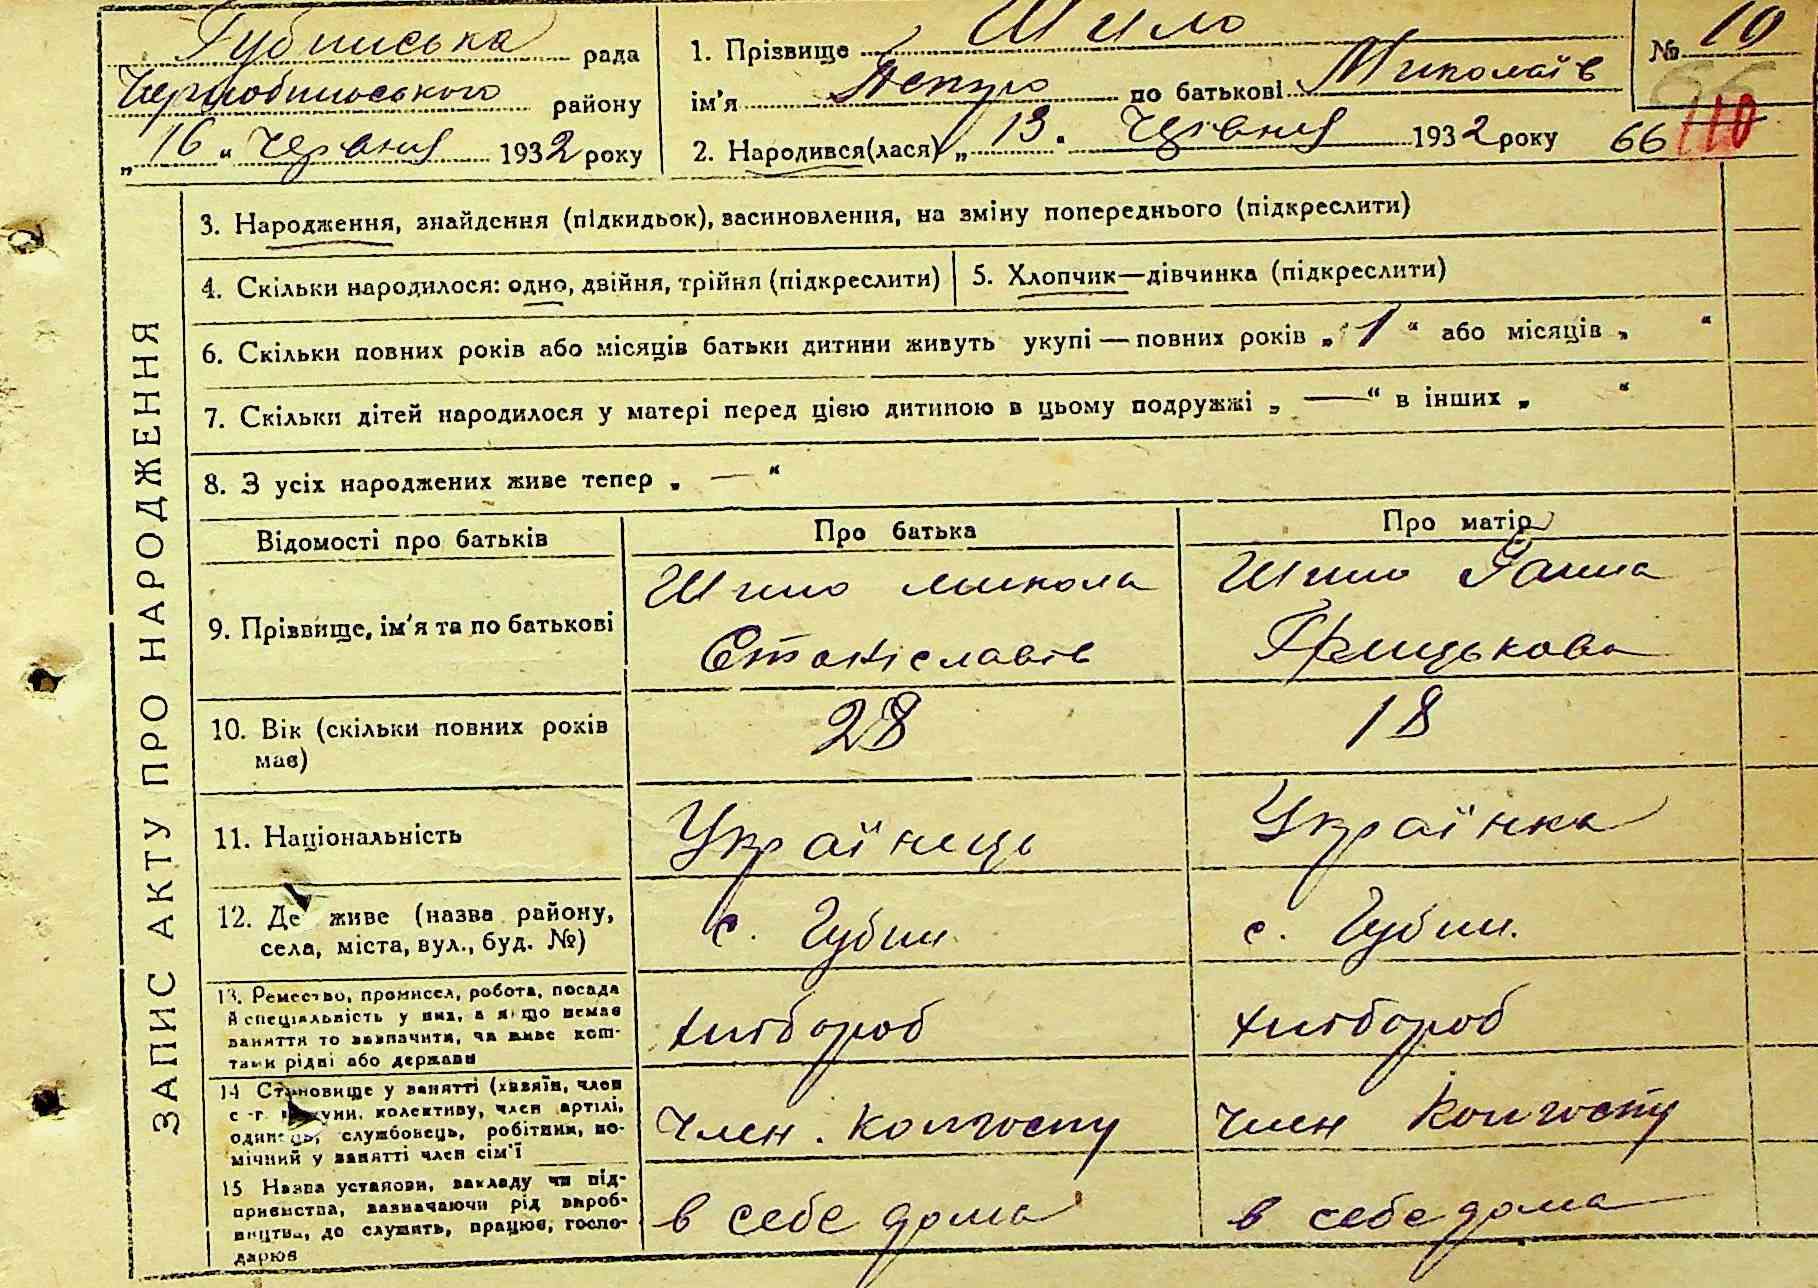 Губинська рада
Чернобильського району
„16“ Червня 1932 року
1. Прізвище Шило
ім'я Петро по батькові Миколаїв
2. Народився(лася) „13“ Червня 1932 року
№ 10
66
110
66
ЗАПИС АКТУ ПРО НАРОДЖЕННЯ
3. Народження, знайдення (підкидьок), васиновлення, на зміну попереднього (підкреслити)
4. Скільки народилося: одно, двійня, трійня (підкреслити)
5. Хлопчик—дівчинка (підкреслити)
6. Скільки повних років або місяців батьки дитини живуть укупі — повних років „1“ або місяців „ “
7. Скільки дітей народилося у матері перед цією дитиною в цьому подружжі „—“ в інших „ “
8. З усіх народжених живе тепер „—“
Відомості про батьків
Про батька
Про матір
9. Прізвище, ім'я та по батькові
Шило микола
Станіславів
Шило Ганна
Грицькова
10. Вік (скільки повних років
має)
28
18
11. Національність
Українець
Українка
12. Де живе (назва району,
села, міста, вул., буд. №)
с. Губин
с. Губин.
13. Ремество, промисел, робота, посада
й спеціяльність у них, а якщо немає
заняття то зазначити, чи живе кош-
тами рідні або держави
хлібороб
хлібороб
14 Становище у занятті (хазяїн, член
с.-г. комуни, колективу, член артілі,
одинець, службовець, робітник, по-
мічний у занятті член сім'ї
Член. колгоспу
Член колгоспу
15 Назва установи, закладу чи під-
приємства, зазначаючи рід вироб-
ництва, де служить, працює, госпо-
дарює
в себе дома
в себе дома